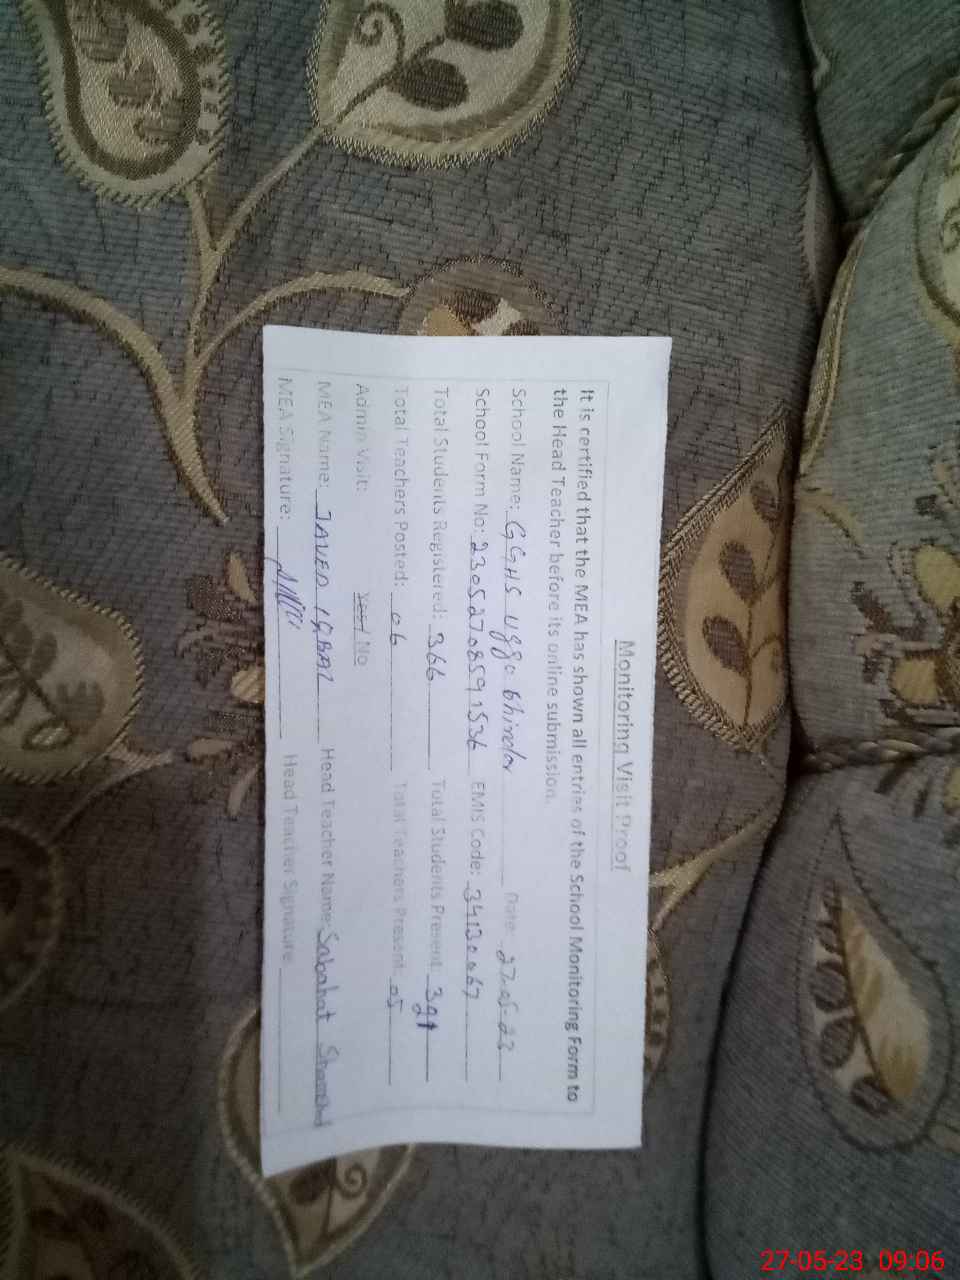 Monitoring Visit Proof
It is certified that the MEA has shown all entries of the School Monitoring Form to
the Head Teacher before its online submission.
School Name: GGHS Uggo bhindor Date: 27-05-23
School Form No: 2305270859 1536 EMIS Code: 34130067
Total Students Registered: 366 Total Students Present:
Total Teachers Posted: 06 Total Teachers Present: 05
Admin Visit: Yes/ No
MEA Name: JAVED IQBAL Head Teacher Name: Sabahat
MEA Signature: Head Teacher Signature:
27-05-23 09:06